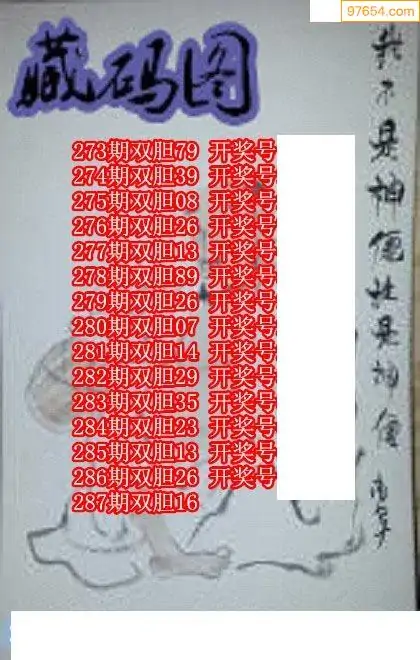 97654.com
藏码图
273期双胆79 开奖号
274期双胆39 开奖号
275期双胆08 开奖号
276期双胆26 开奖号
277期双胆13 开奖号
278期双胆89 开奖号
279期双胆26 开奖号
280期双胆07 开奖号
281期双胆14 开奖号
282期双胆29 开奖号
283期双胆35 开奖号
284期双胆23 开奖号
285期双胆13 开奖号
286期双胆26 开奖号
287期双胆16
我不是神便社是神便